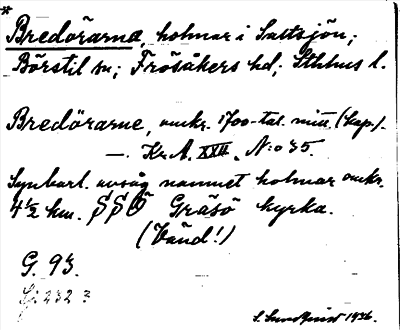 *
Bredörarna, holmar i Saltsjön;
Börstil sn; Frösåkers hd; Sthlms l.
Bredörarne, omkr. 1700-tal. mitt (kop.).
—. Kr. A. XXIII. N:o 35.
Synbarl. avsåg namnet holmar omkr.
4½ km. SSÖ Gräsö kyrka.
(Vänd!)
G. 93.
S. Lundquist 1936.